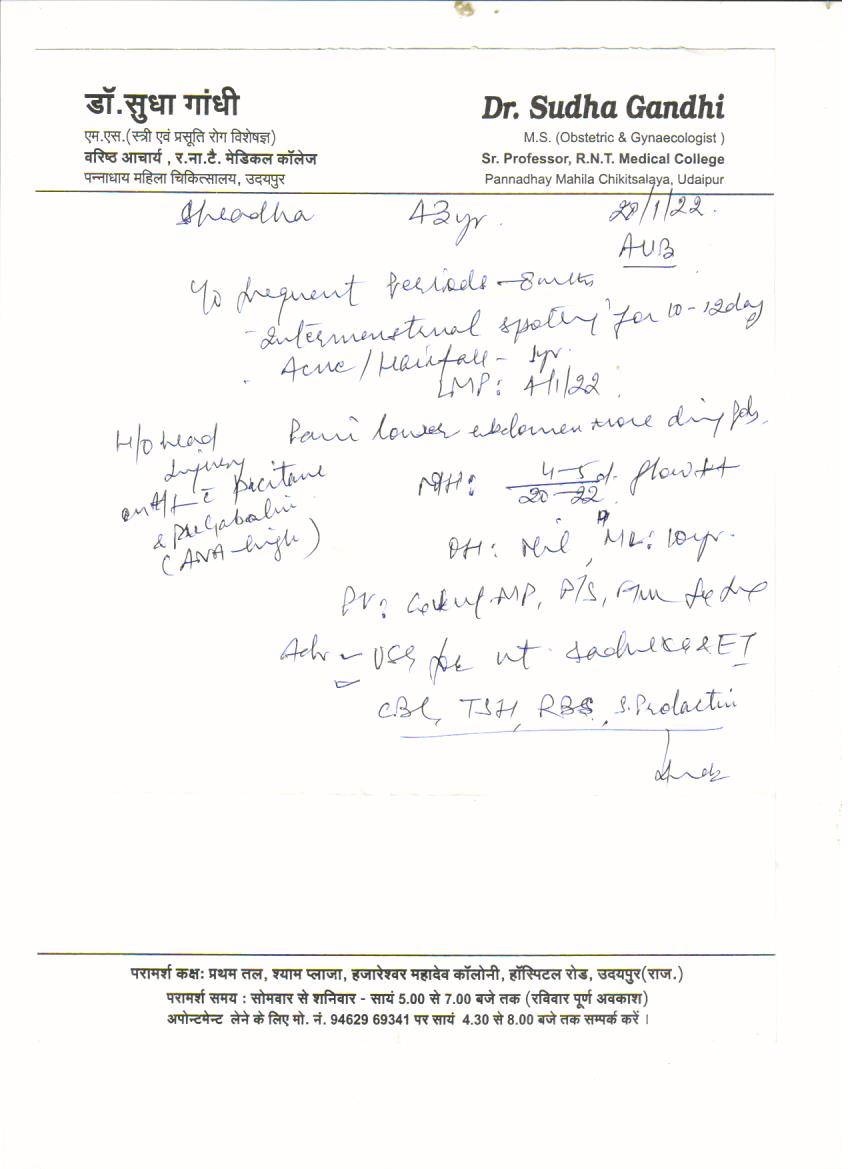 डॉ.सुधा गांधी
एम.एस.(स्त्री एवं प्रसूति रोग विशेषज्ञ)
वरिष्ठ आचार्य , र.ना.टै. मेडिकल कॉलेज
पन्नाधाय महिला चिकित्सालय, उदयपुर
Dr. Sudha Gandhi
M.S. (Obstetric & Gynaecologist )
Sr. Professor, R.N.T. Medical College
Pannadhay Mahila Chikitsalaya, Udaipur
43 yr. 20/1/22.
AUB
frequent Periods - 8 mths
Intermenstrual spotting for 10-12 days
Acne / Hairfall - 1yr.
LMP: 4/1/22
Pain lower abdomen more during
H/o head
injury
on A/T c Pacitane
& Pregabalin
(ANA - high)
MH: 4-5 d. flow ++
20-22
OH: Nil, ML: 10 yr.
Adv - USG for ut. & ET
CBC, TSH, RBS, S. Prolactin
परामर्श कक्ष: प्रथम तल, श्याम प्लाजा, हजारेश्वर महादेव कॉलोनी, हॉस्पिटल रोड, उदयपुर(राज.)
परामर्श समय : सोमवार से शनिवार - सायं 5.00 से 7.00 बजे तक (रविवार पूर्ण अवकाश)
अपोन्टमेन्ट लेने के लिए मो. नं. 94629 69341 पर सायं 4.30 से 8.00 बजे तक सम्पर्क करें ।